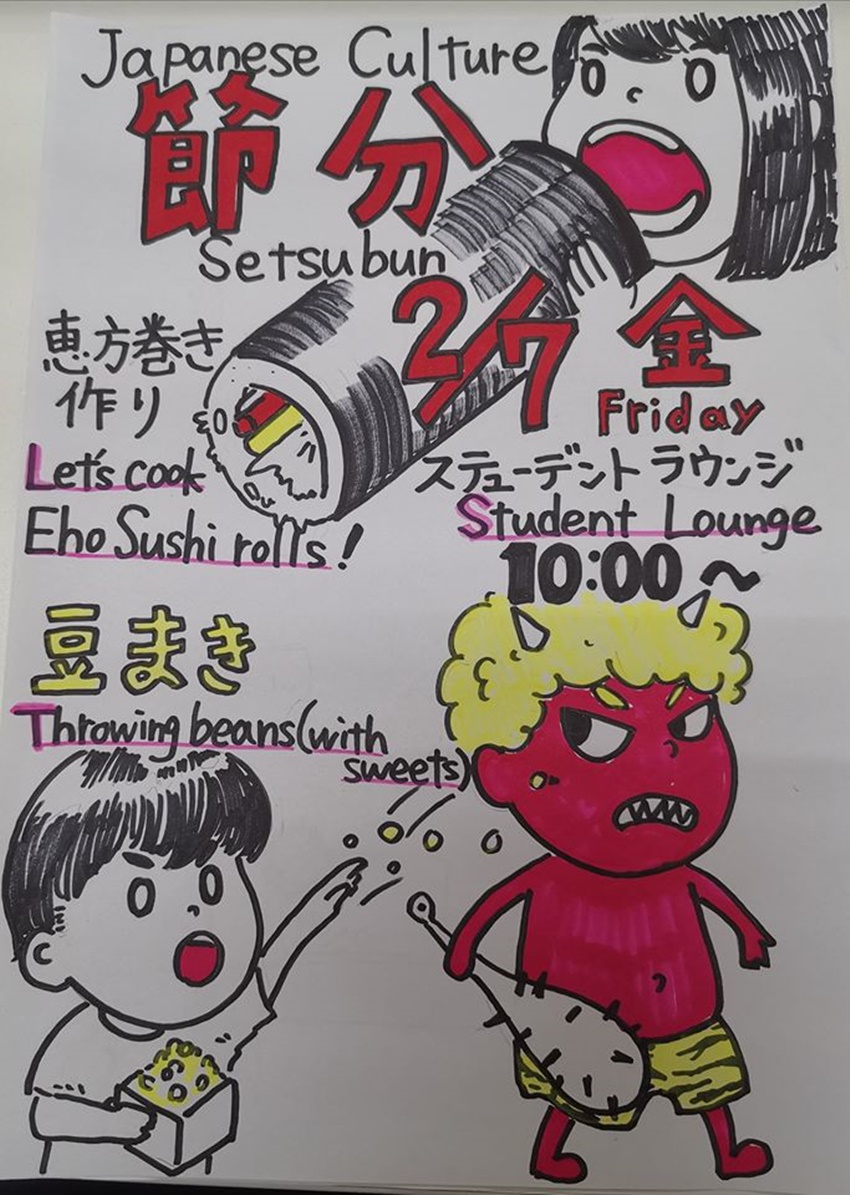 Japanese Culture
節分
Setsubun
2/7 金
Friday
恵方巻き
作り
Let's cook
Eho Sushi rolls!
ステューデントラウンジ
Student Lounge
10:00~
豆まき
Throwing beans(with
sweets)